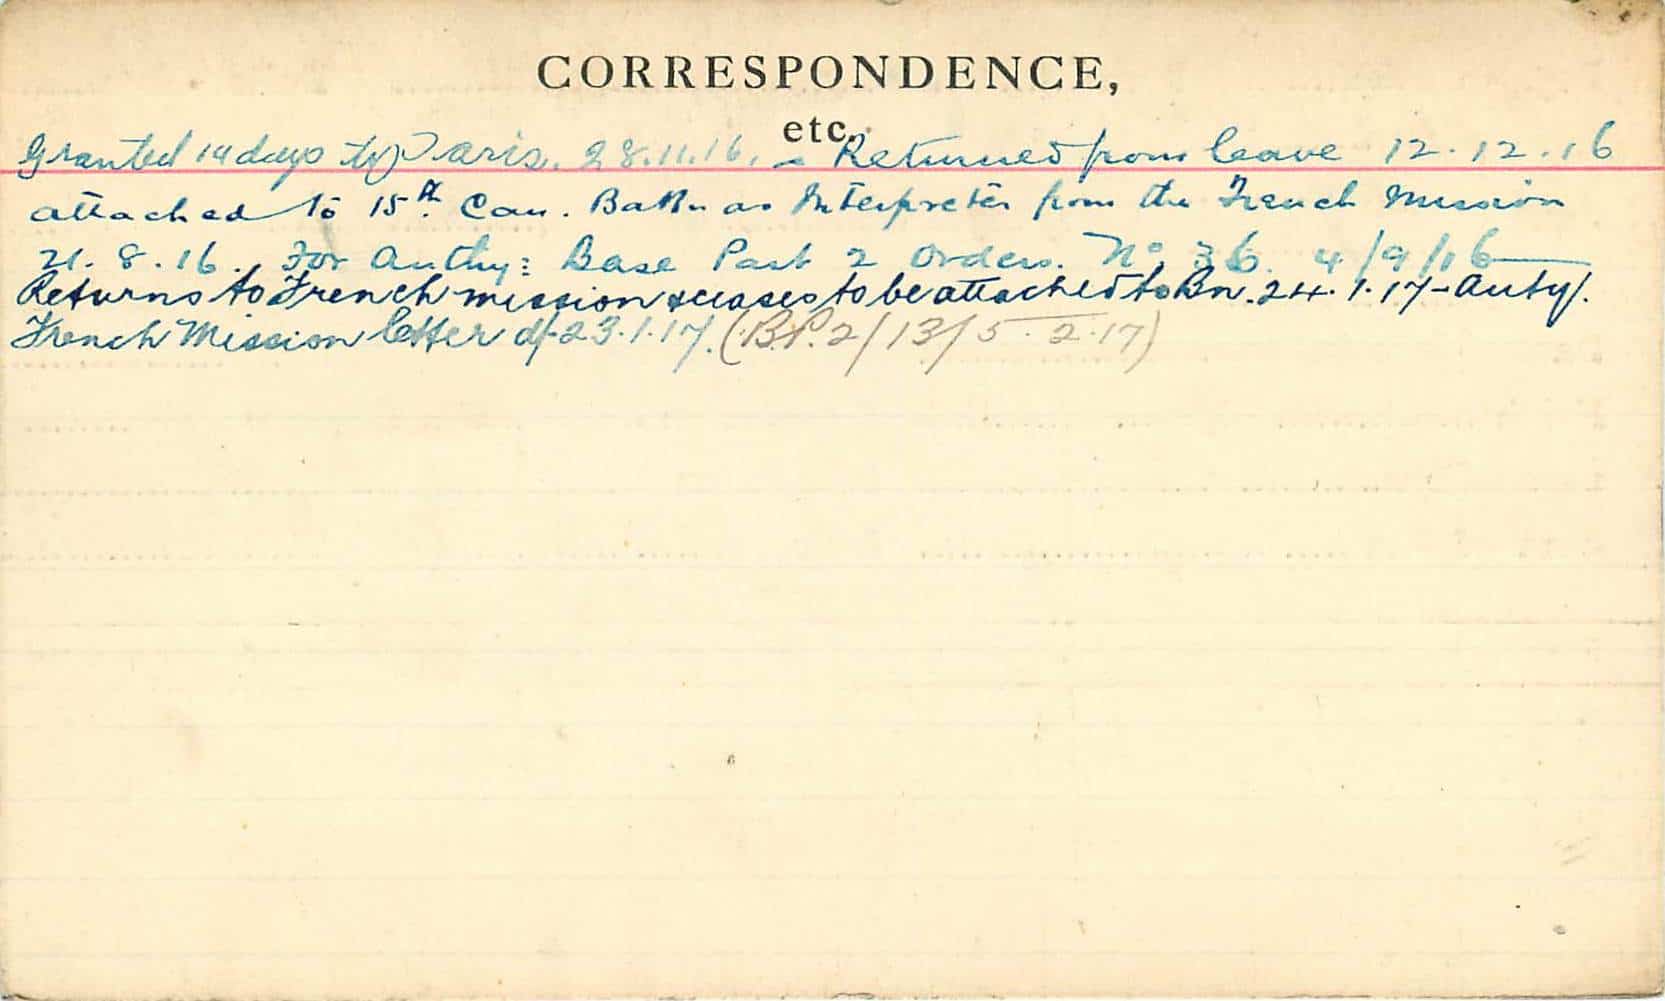 CORRESPONDENCE,
etc.
Granted 14 days to Paris. 28.11.16. – Returned from leave 12.12.16
attached to 15th Can. Battn as Interpreter from the French Mission
21.8.16. For Authy: Base Part 2 Orders. No 36. 4/9/16
Returns to French mission & ceases to be attached to Bn. 24.1.17 - Auty/.
French Mission letter d/- 23.1.17. (B.P.2/13/5.2.17)